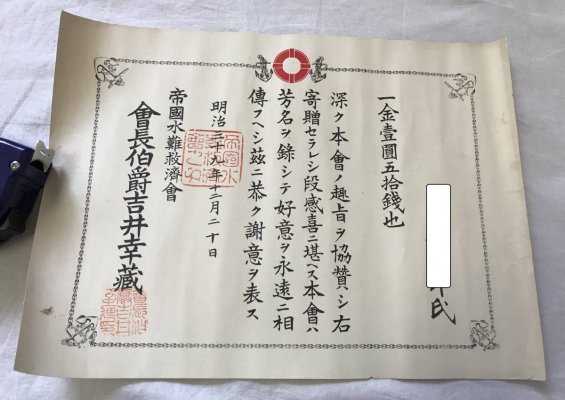 氏
一金壹圓五拾錢也
深ク本會ノ趣旨ヲ協贊シ右
寄贈セラレシ段感喜ニ堪ヘス本會ハ
芳名ヲ錄シテ好意ヲ永遠ニ相
傳フヘシ茲ニ恭ク謝意ヲ表ス
明治三十九年十二月二十日
帝國水難救濟會
會長伯爵吉井幸藏